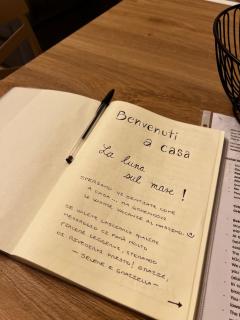 Benvenuti
a casa
La luna
sul mare!
SPERIAMO VI SENTIATE COME
A CASA ... MA GODENDOVI
LE VOSTRE VACANZE AL MASSIMO
SE VOLETE LASCIARCI QUALCHE
MESSAGGIO CI FARÀ MOLTO
PIACERE LEGGERVI. SPERIAMO
DI RIVEDERVI PRESTO! GRAZIE,
SELENE E GRAZIELLA